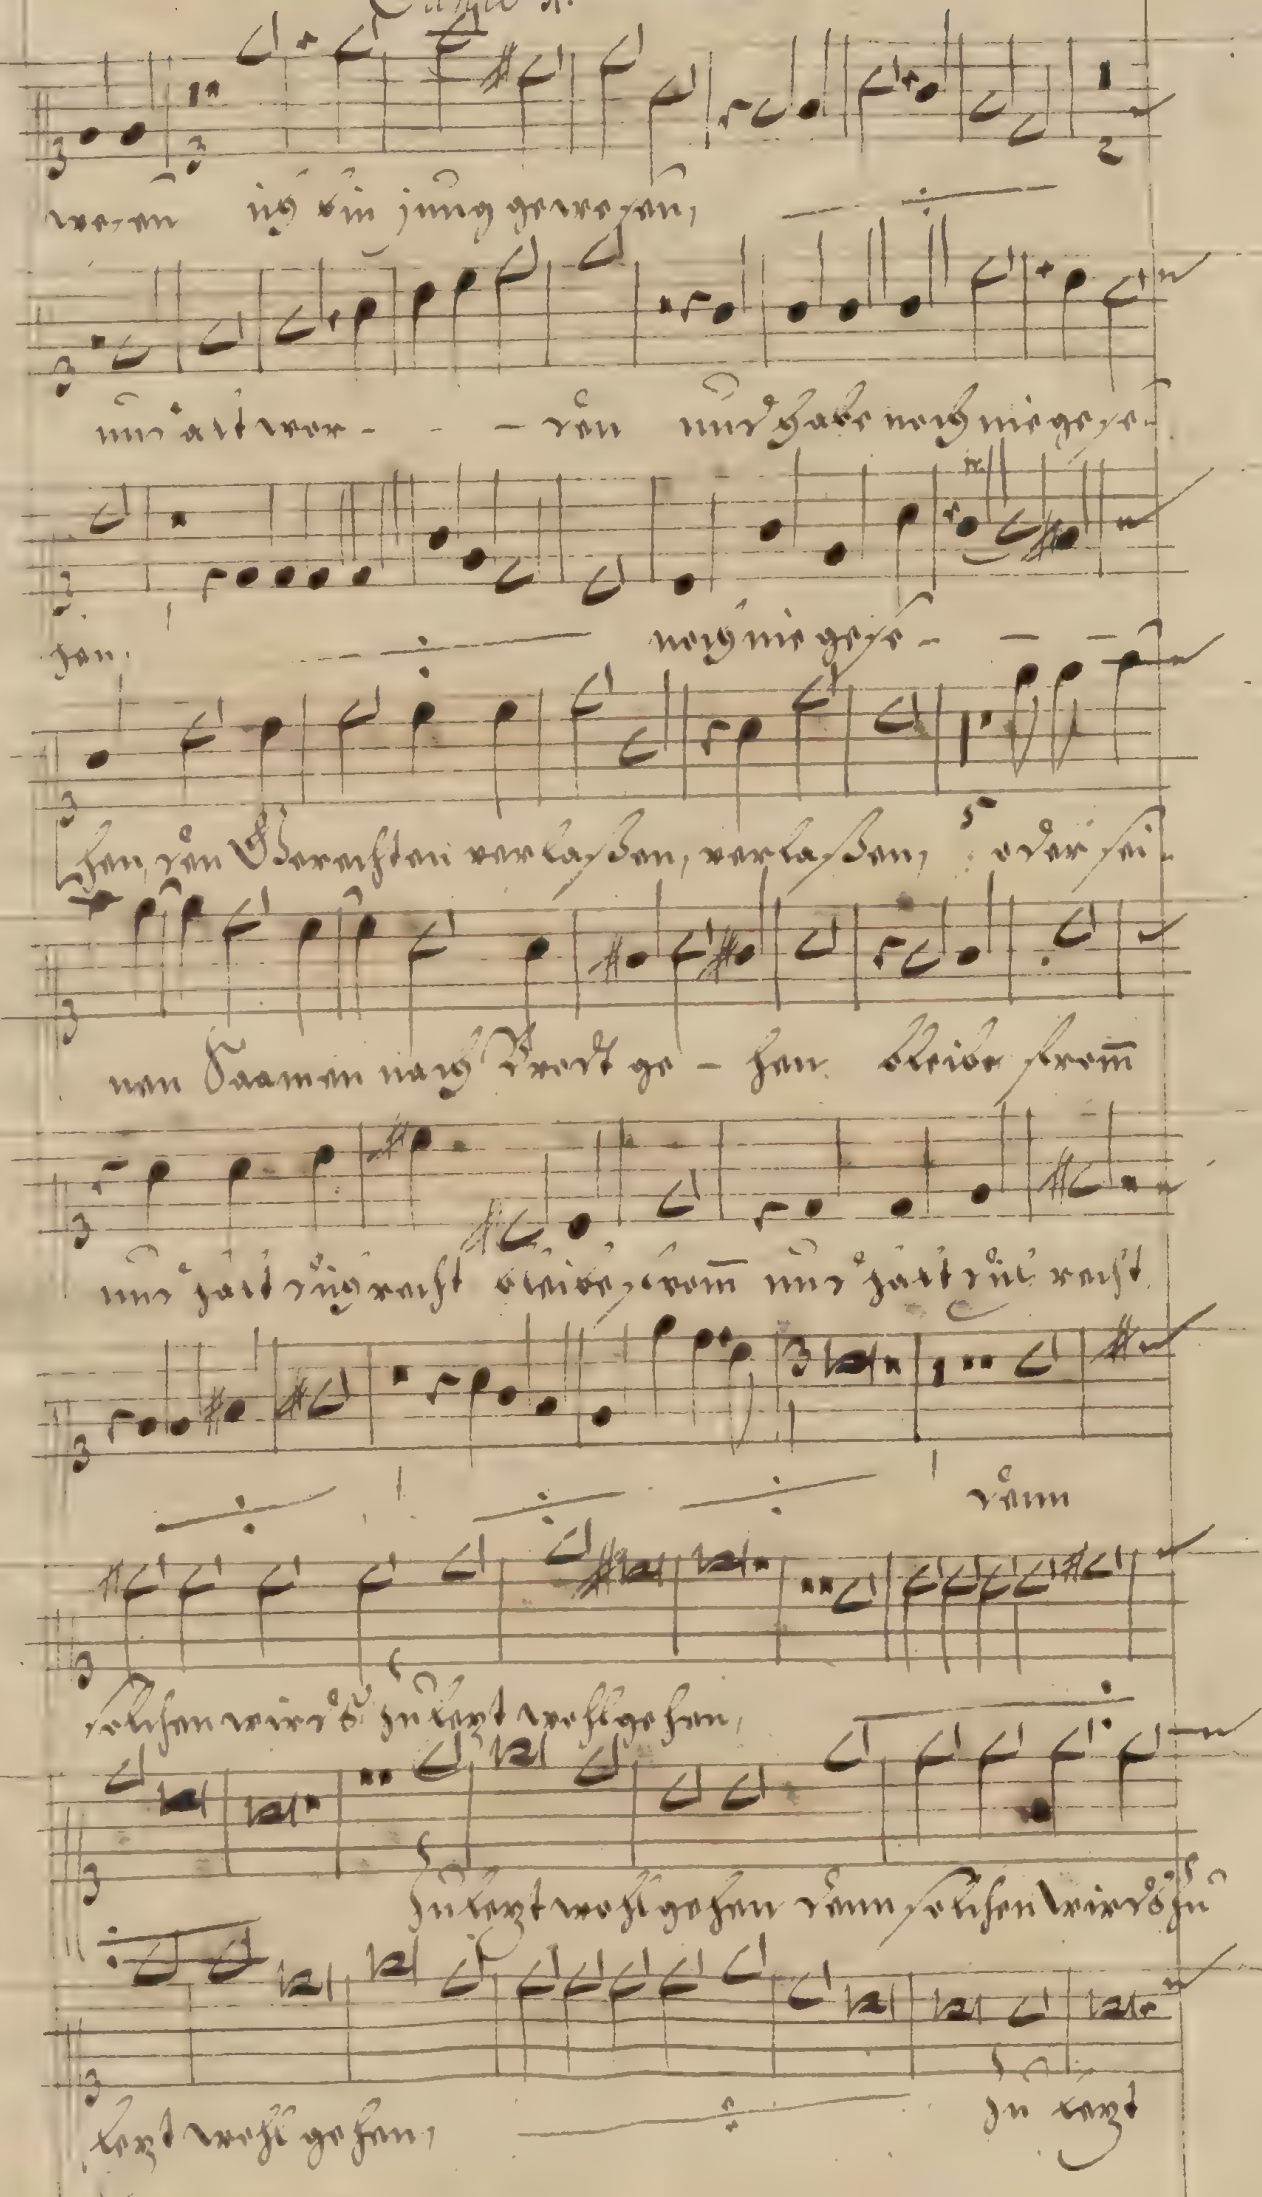 Canto 1.
wesen ich bin jung gewesen,
und alt wer - - - den und habe noch nie gese-
hen, noch nie gese - - -
hen, den Gerechten verlaßen, verlaßen, oder sei-
nen Saamen nach Brodt ge - hen. bleibe from̅
und halt dich recht bleibe from̅ und halt dich recht
denn
solchen wirds zu lezt wohl gehen,
zu lezt wohl gehen denn solchen wirds zu
lezt wohl gehen, zu lezt